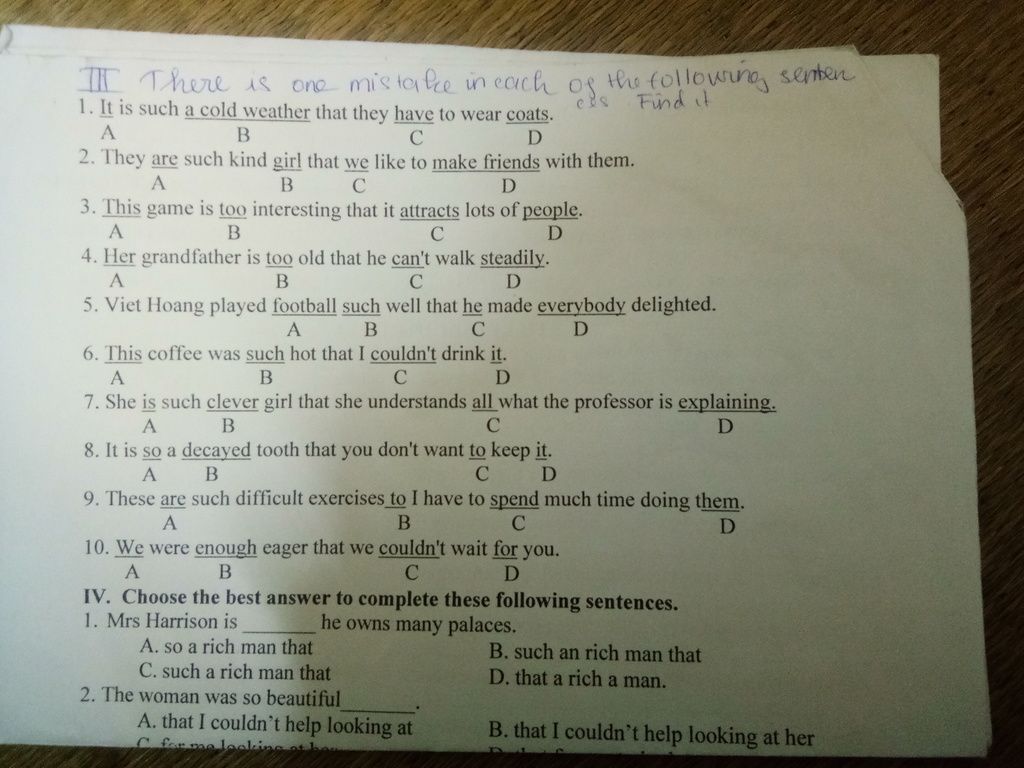 III There is one mistake in each of the following senten
ces Find it
1. It is such a cold weather that they have to wear coats.
A B C D
2. They are such kind girl that we like to make friends with them.
A B C D
3. This game is too interesting that it attracts lots of people.
A B C D
4. Her grandfather is too old that he can't walk steadily.
A B C D
5. Viet Hoang played football such well that he made everybody delighted.
A B C D
6. This coffee was such hot that I couldn't drink it.
A B C D
7. She is such clever girl that she understands all what the professor is explaining.
A B C D
8. It is so a decayed tooth that you don't want to keep it.
A B C D
9. These are such difficult exercises to I have to spend much time doing them.
A B C D
10. We were enough eager that we couldn't wait for you.
A B C D
IV. Choose the best answer to complete these following sentences.
1. Mrs Harrison is _______ he owns many palaces.
A. so a rich man that B. such an rich man that
C. such a rich man that D. that a rich a man.
2. The woman was so beautiful_______.
A. that I couldn't help looking at B. that I couldn't help looking at her
C. for me looking at her